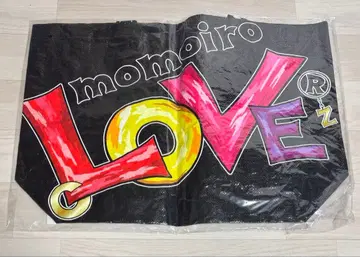 momoiro
LOVE
®
-Z